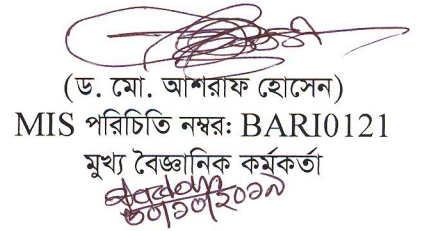 (ড. মো. আশরাফ হোসেন)
MIS পরিচিতি নম্বরঃ BARI0121
মুখ্য বৈজ্ঞানিক কর্মকর্তা
৩০/১০/২০১৯